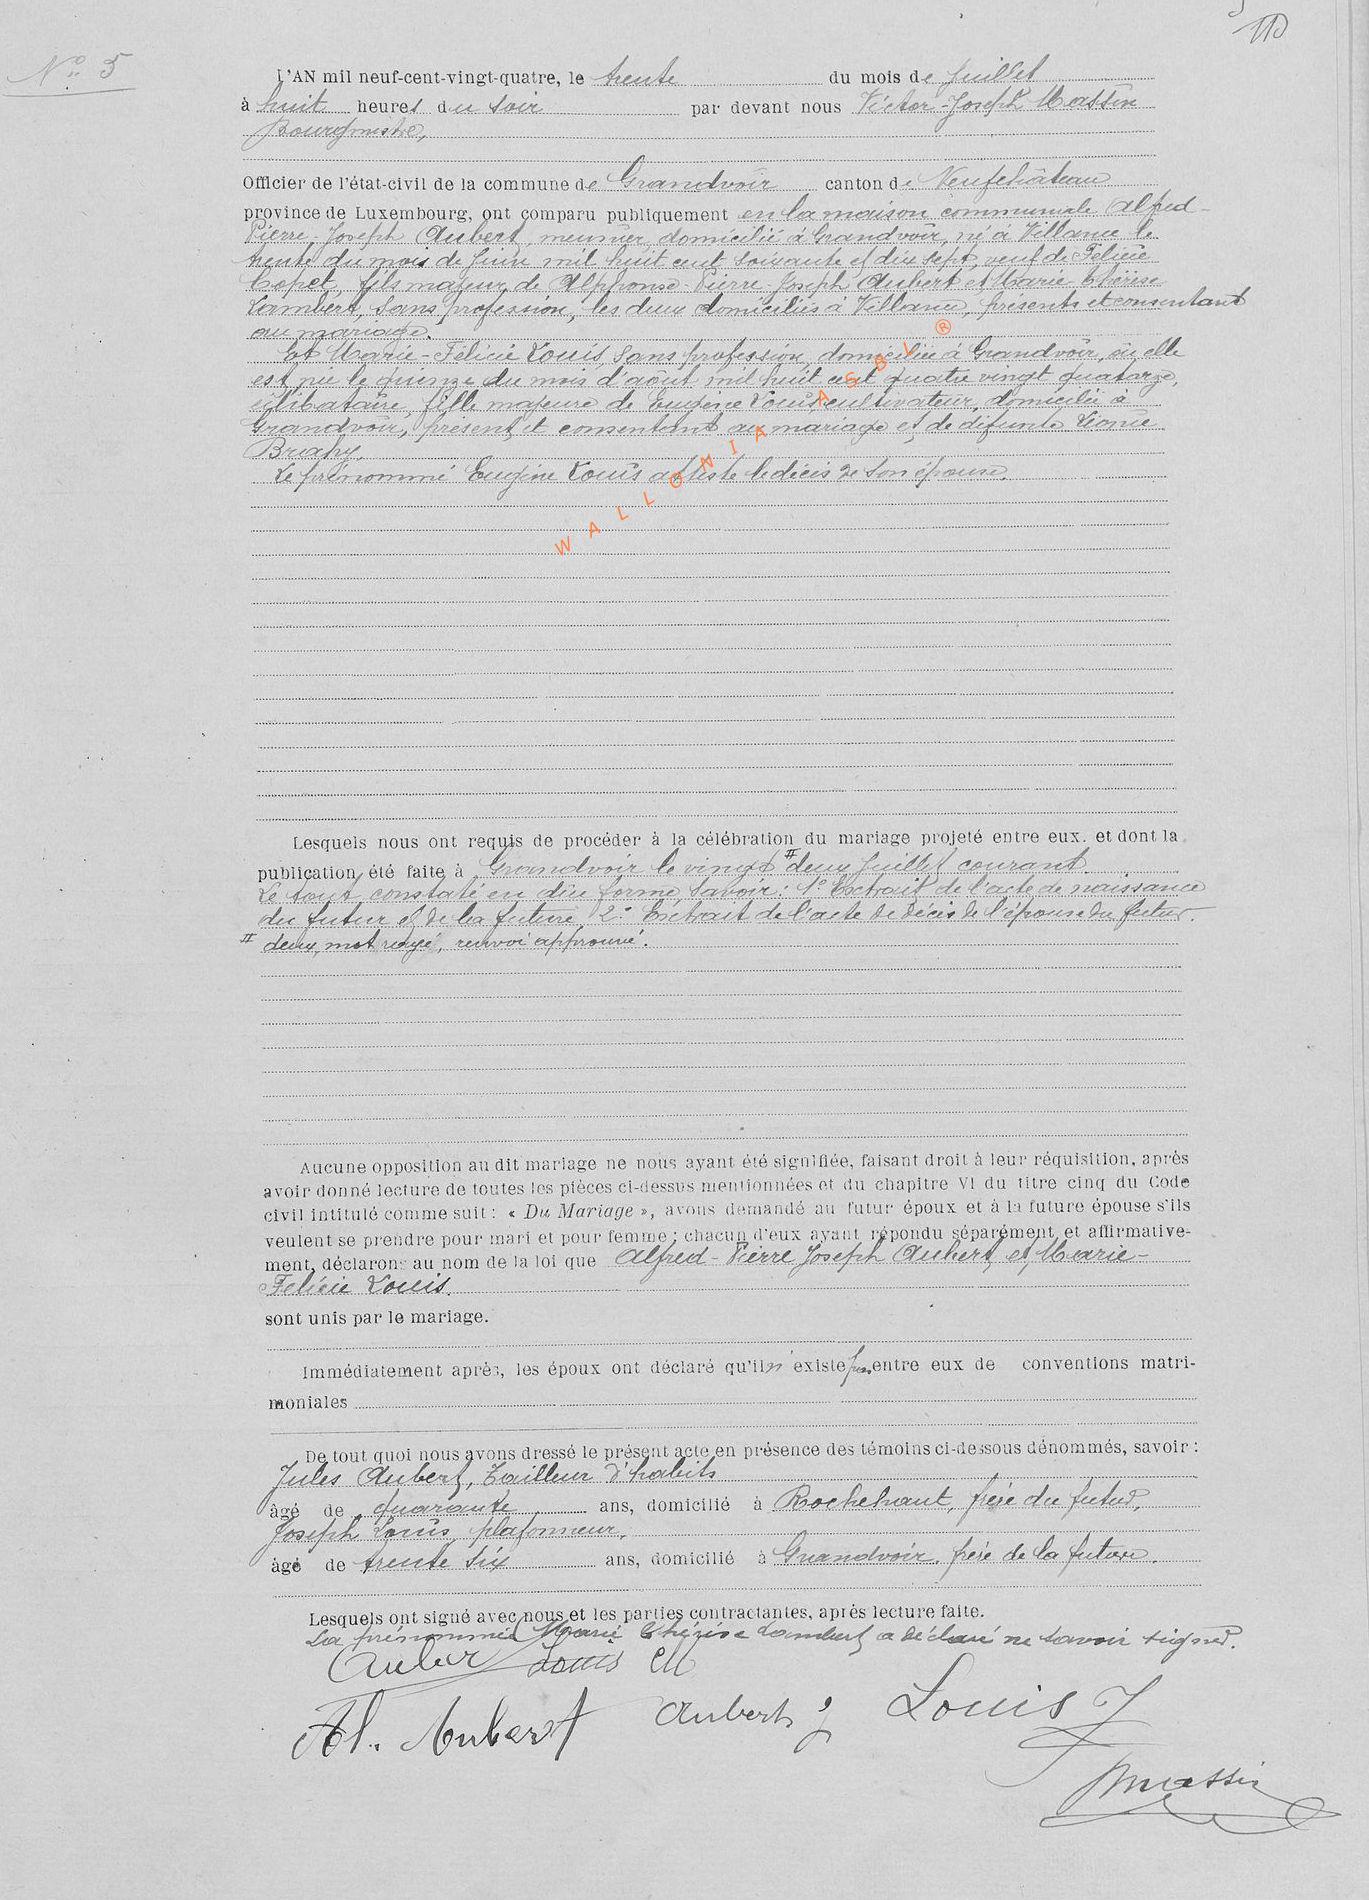 No 5
L'AN mil neuf-cent-vingt-quatre, le trente du mois de Juillet
à huit heures du soir par devant nous Victor-Joseph Massin
Bourgmestre,
Officier de l'état-civil de la commune de Grandvoir canton de Neufchâteau
province de Luxembourg, ont comparu publiquement en la maison communale Alfred-
Pierre-Joseph Aubert, meunier, domicilié à Grandvoir, né à Villance le
trente du mois de Juin mil huit cent soixante et dix sept, veuf de Félicie
Copet, fils majeur de Alphonse-Pierre-Joseph Aubert et Marie Thérèse
Lambert, sans profession, les deux domiciliés à Villance, présents et consentant
au mariage.
Et Marie-Félicie Louis, sans profession, domiciliée à Grandvoir, où elle
est née le quinze du mois d'août mil huit cent quatre vingt quatorze,
célibataire, fille majeure de Eugène Louis cultivateur, domicilié à
Grandvoir, présent et consentant au mariage et de défunte Léonie
Le prénommé Eugène Louis atteste le décès de son épouse.
WALLONIA ASBL ®
Lesquels nous ont requis de procéder à la célébration du mariage projeté entre eux. et dont la
publication été faite à Grandvoir le vingt deux Juillet courant.
Le tout constaté en due forme, savoir: 1° Extrait de l'acte de naissance
du futur et de la future, 2° Extrait de l'acte de décès de l'épouse du futur.
deux, mot rayé, renvoi approuvé.
Aucune opposition au dit mariage ne nous ayant été signifiée, faisant droit à leur réquisition, après
avoir donné lecture de toutes les pièces ci-dessus mentionnées et du chapitre VI du titre cinq du Code
civil intitulé comme suit: « Du Mariage », avons demandé au futur époux et à la future épouse s'ils
veulent se prendre pour mari et pour femme; chacun d'eux ayant répondu séparément et affirmative-
ment, déclarons au nom de la loi que Alfred-Pierre Joseph Aubert et Marie-
Félicie Louis.
sont unis par le mariage.
Immédiatement après, les époux ont déclaré qu'il n'existe pas entre eux de conventions matri-
moniales
De tout quoi nous avons dressé le présent acte en présence des témoins ci-dessous dénommés, savoir:
Jules Aubert, Tailleur d'habits
âgé de quarante ans, domicilié à Rochehaut, frère du futur,
Joseph Louis, plafonneur,
âgé de trente six ans, domicilié à Grandvoir, frère de la future.
Lesquels ont signé avec nous et les parties contractantes, après lecture faite.
La prénommée Marie Thérèse Lambert a déclaré ne savoir signer.
Aubert Louis
Al. Aubert Aubert J Louis J
Massin